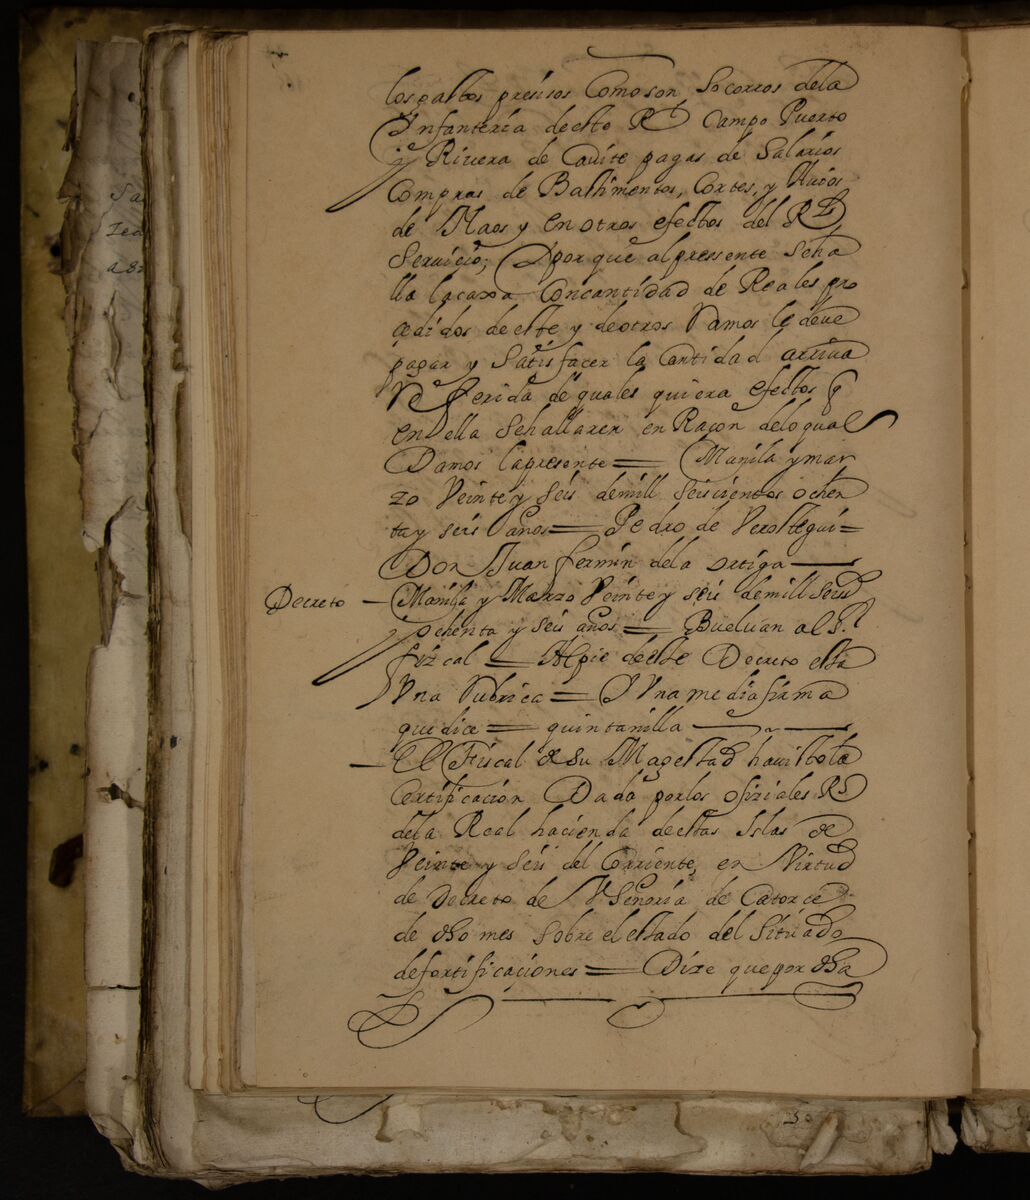 los gastos presisos Como son Socorros de la
Ynfanteria de este Rl Campo Puerto
y Rivera de Cauite pagas de Salarios
Compras de Bastimentos, Cortes, y Auios
de Naos y en otros efectos del Rl
Seruicio; Y por que al pressente se ha
lla la caxa Con cantidad de Reales pro
cedidos de este y de otros Ramos le deue
pagar y Satisfacer la Cantidad arriua
Referida de quales quiera efectos q
en ella se hallaren en Raçon de lo qual
Damos la presente = Manila y mar
zo Veinte y seis de mill seiscientos ochen
ta y seis años = Pedro de Verastegui =
Don Juan fermin de la ortiga —
Decreto — Manila y Marzo Veinte y seis de mill seis
ochenta y seis años = Bueluan al S.r
fizcal = Al pie de este Decreto esta
Vna Rubrica = Y Vna media firma
que dice = quintanilla —
— El Fiscal de su Magestad ha uisto la
Certificacion Dada por los ofiziales Rs
de la Real hacienda de estas Islas de
Veinte y seis del Corriente, en Virtud
de Decreto de VSeñoria de Catorce
de dho mes sobre el estado del Situado
de fortificaçiones = Dize que por dha